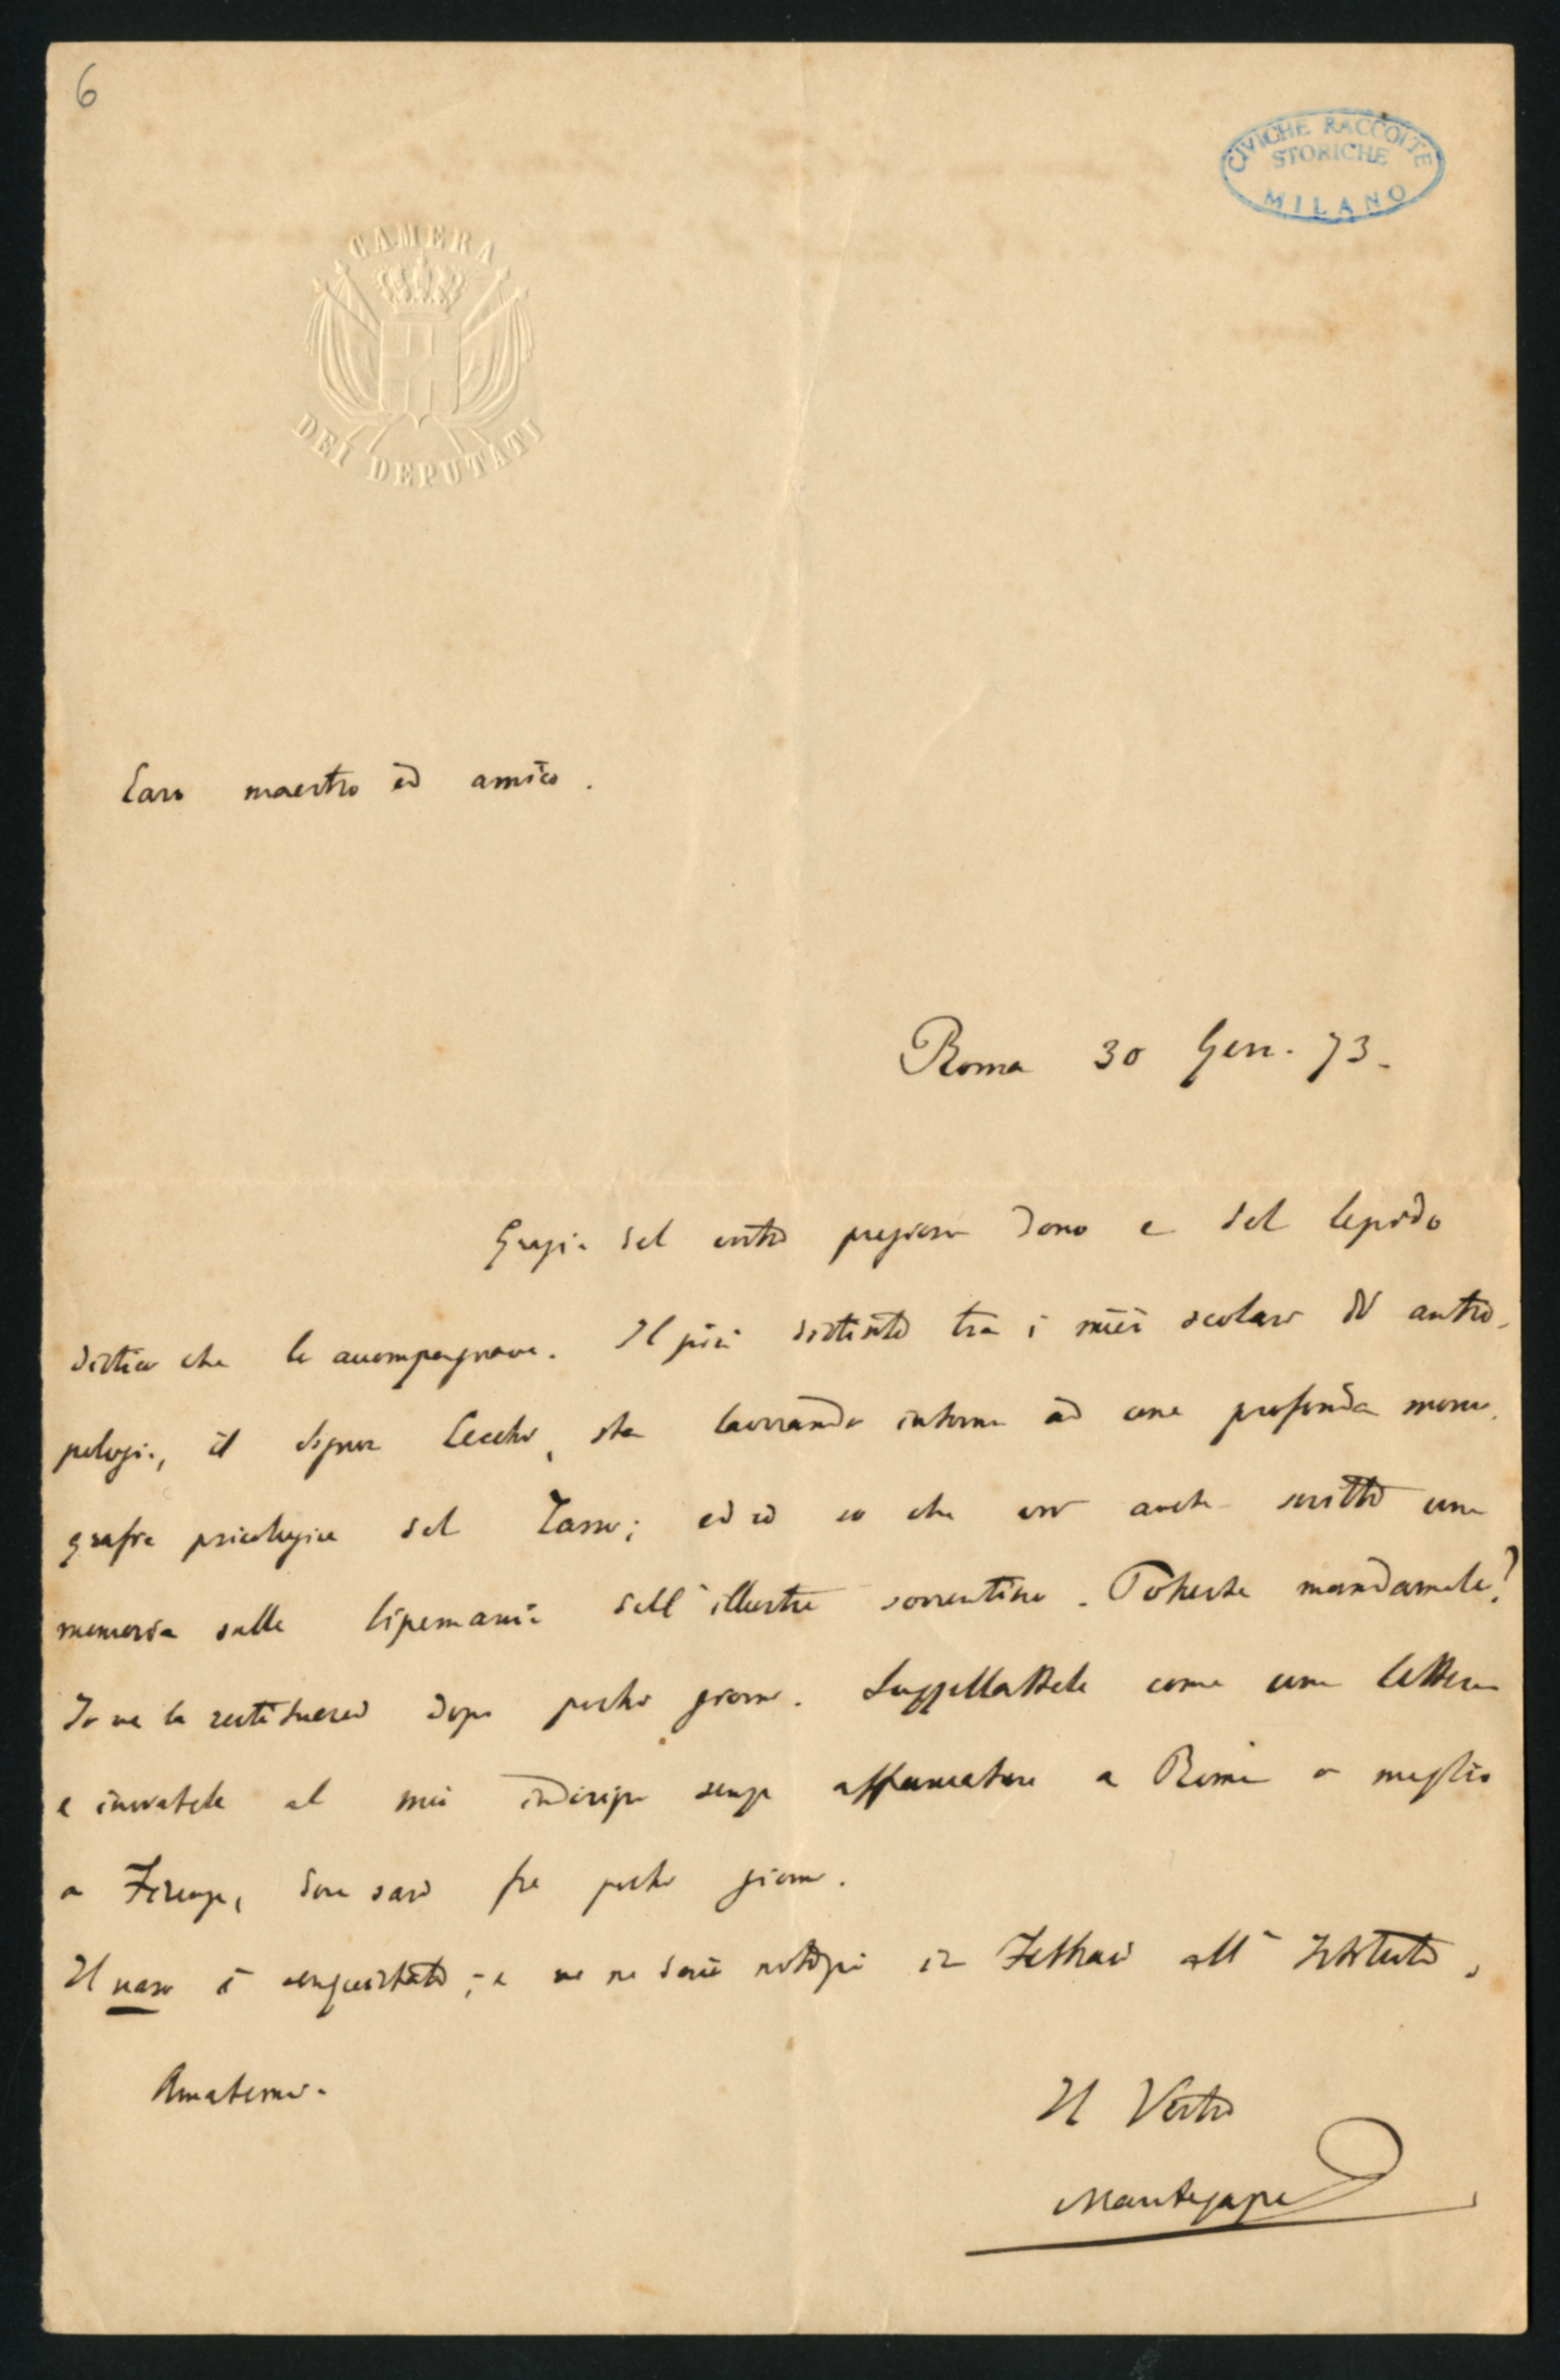 6
CIVICHE RACCOLTE
STORICHE
MILANO
CAMERA
DEI DEPUTATI
Caro maestro ed amico.
Roma 30 Genn. 73.
Grazie del vostro prezioso dono e del lepido
distico che lo accompagnava. Il più distinto tra i miei scolari di antro-
pologia, il signor Cecchi, sta lavorando intorno ad una profonda mono-
grafia psicologica del Tasso; ed io so che avete scritto una
memoria sulla lipemania dell'illustre sorrentino. Potreste mandarmela?
Io ve la restituerei dopo pochi giorni. Suggellatela come una lettera
e inviatela al mio indirizzo senza affrancatura a Roma o meglio
a Firenze, dove sarò fra pochi giorni.
Il naso è conquistato; e ve ne darò notizia in Febbraio all'Istituto.
Amatemi.
Il Vostro
Mantegazza